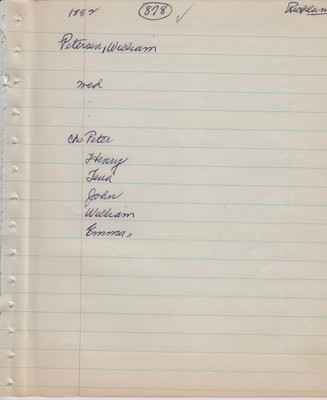 1882 878 ✓
Petersen, William
med
Chs Peter
Henry
Tena
John
William
Emma.